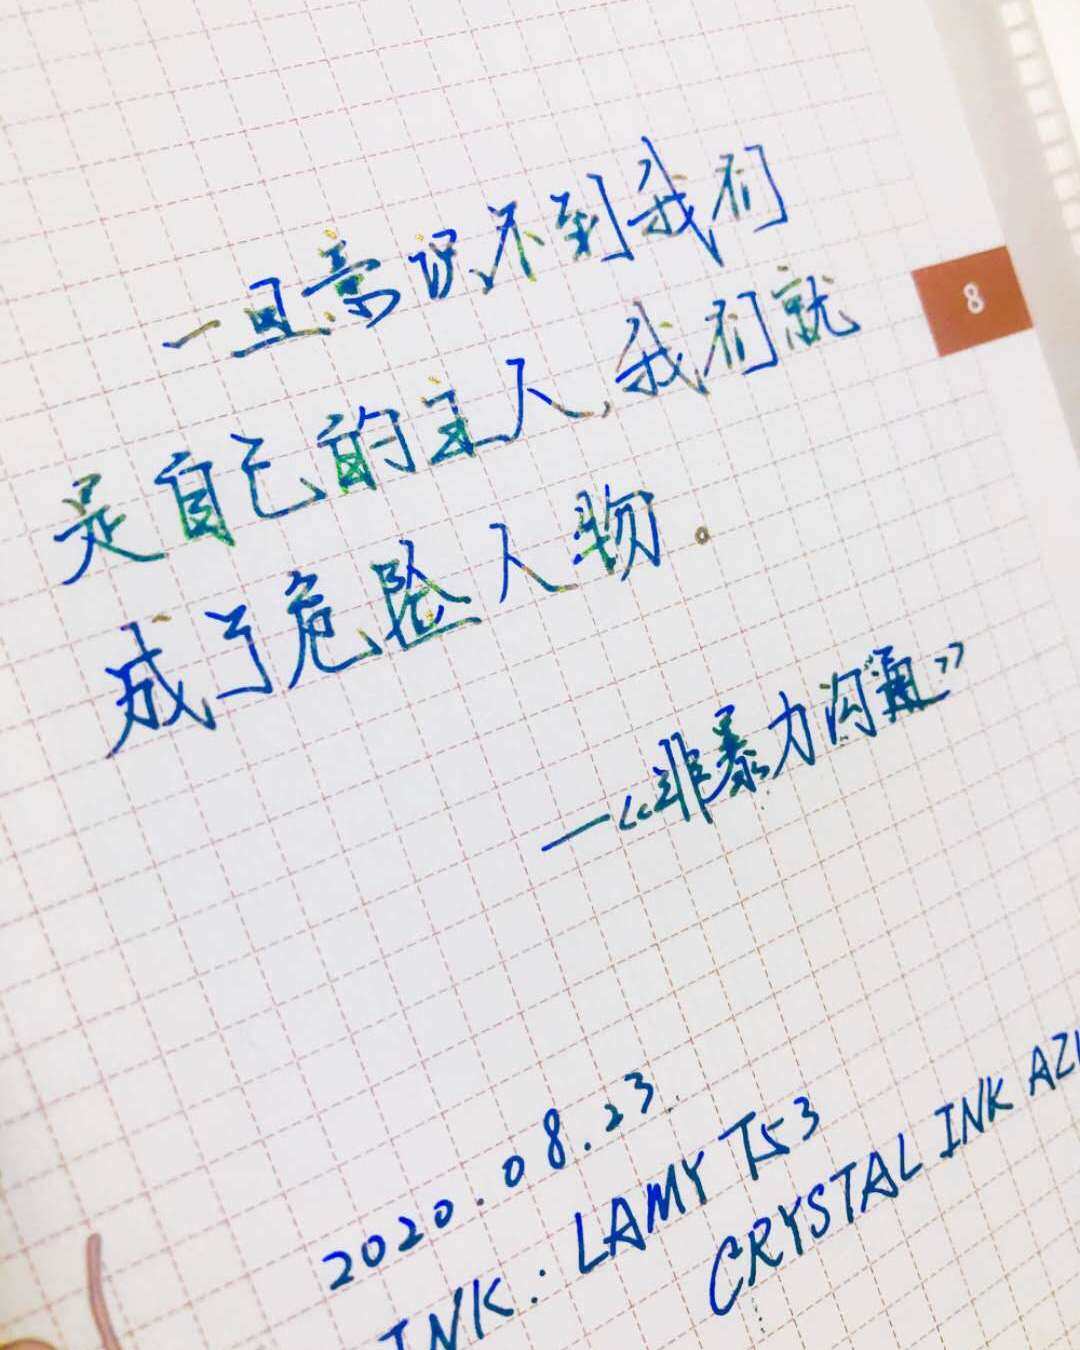 一旦意识不到我们
是自己的主人,我们就
成了危险人物。
—《非暴力沟通》
8
2020.08.23.
INK: LAMY T53
CRYSTAL INK